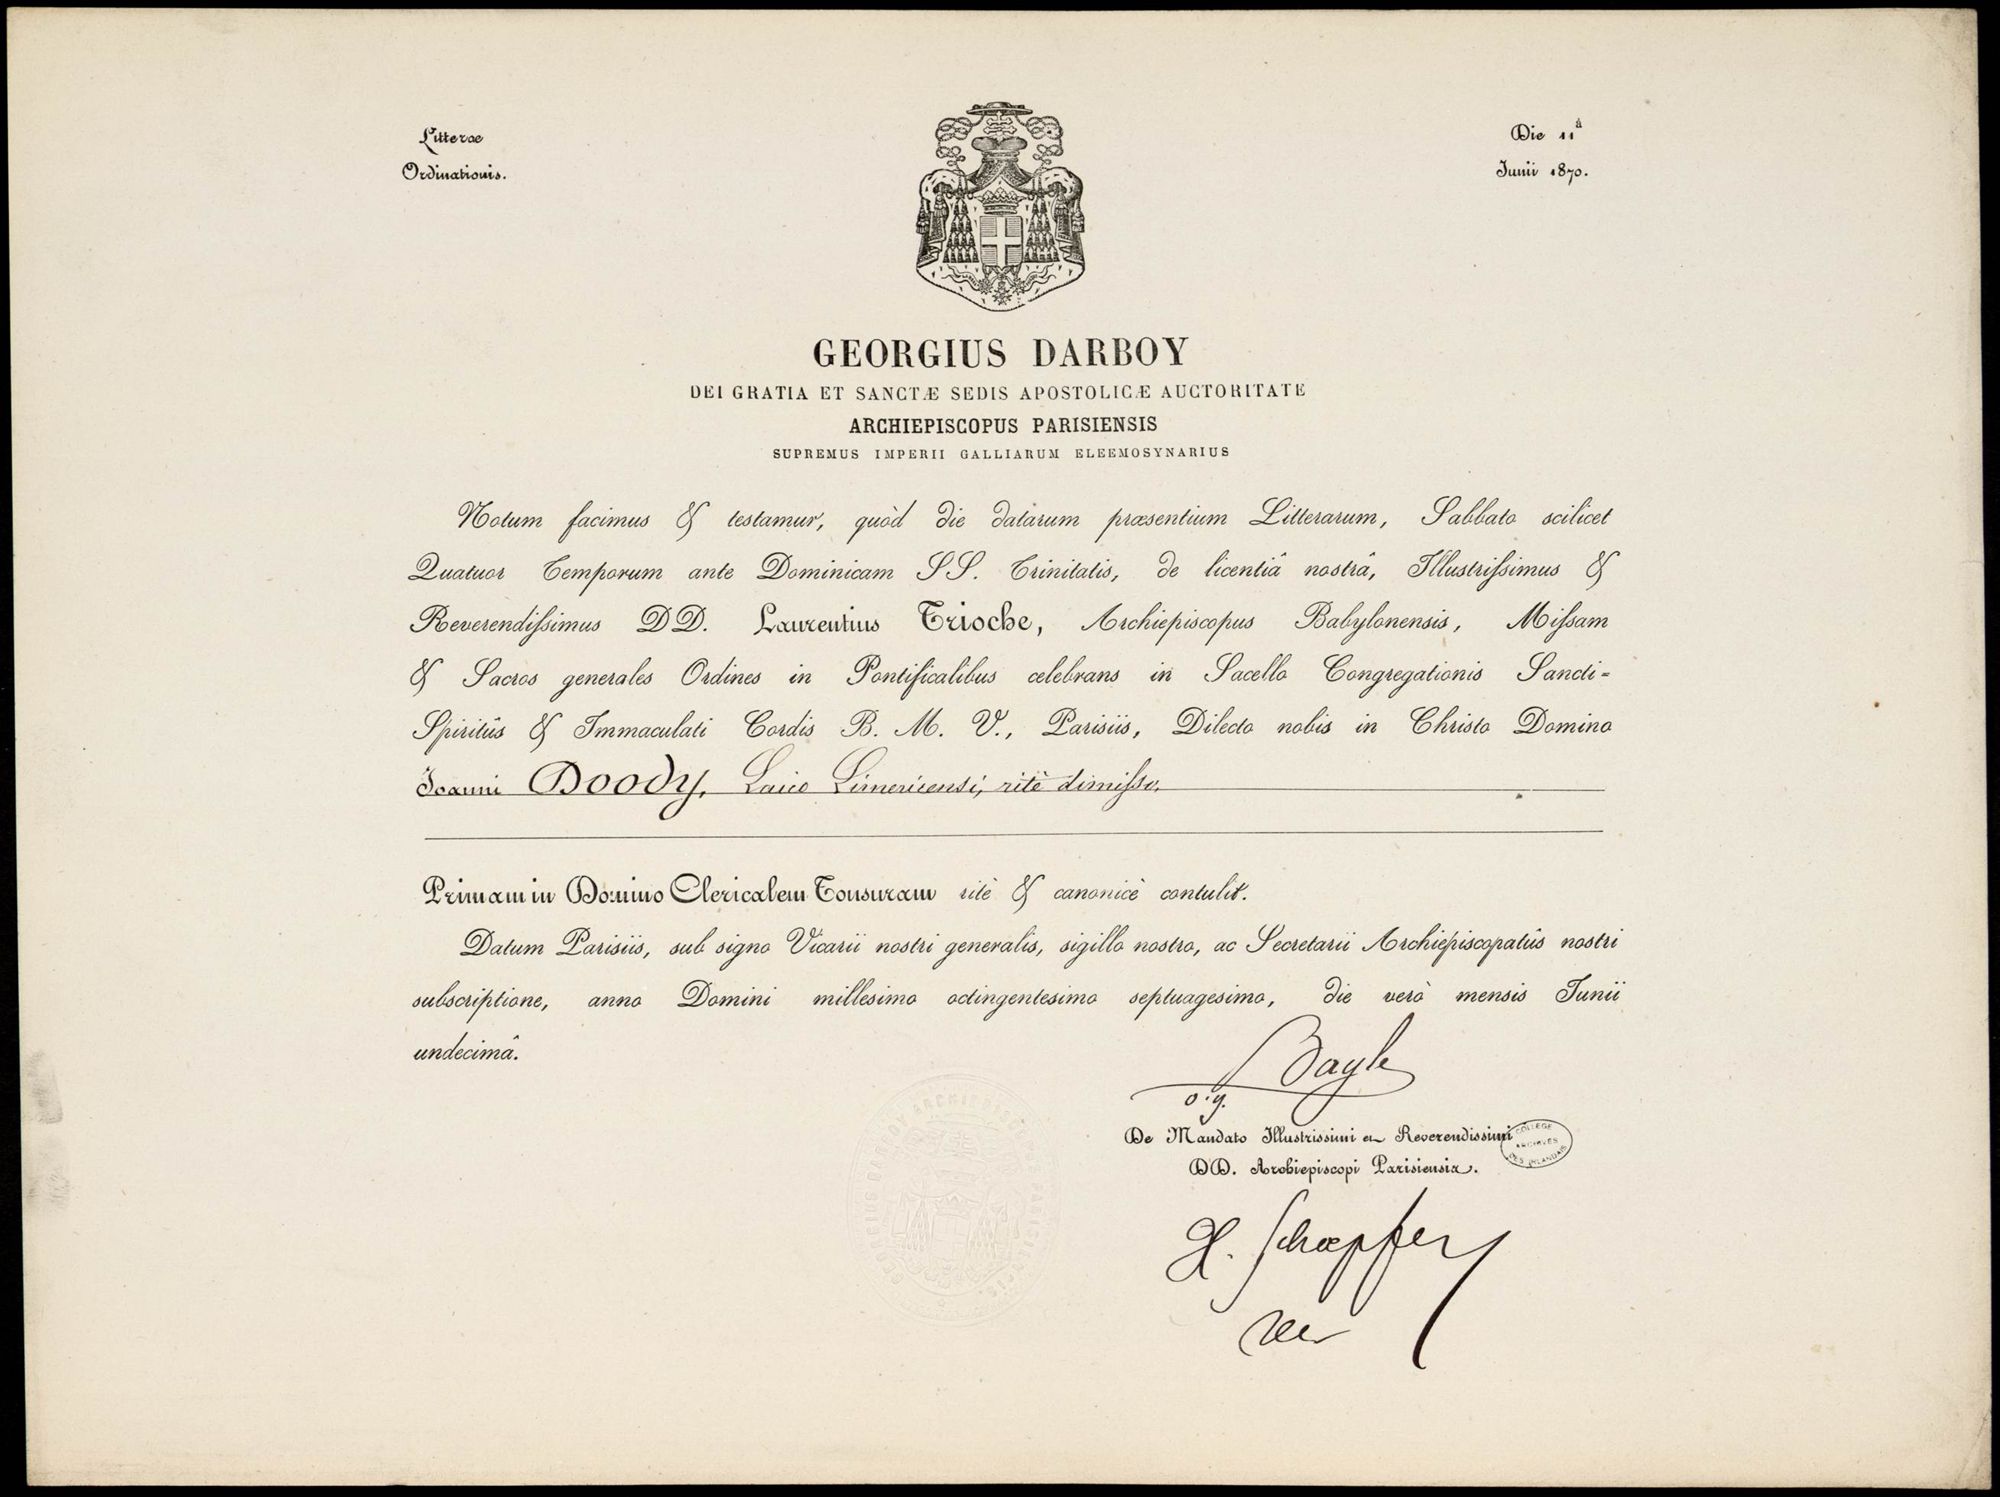 Litteræ
Ordinationis.
Die 11ª
Junii 1870.
GEORGIUS DARBOY
DEI GRATIA ET SANCTÆ SEDIS APOSTOLICÆ AUCTORITATE
ARCHIEPISCOPUS PARISIENSIS
SUPREMUS IMPERII GALLIARUM ELEEMOSYNARIUS
Notum facimus & testamur, quòd die datarum præsentium Litterarum, Sabbato scilicet
Quatuor Temporum ante Dominicam SS. Trinitatis, de licentiâ nostrâ, Illustrissimus &
Reverendissimus DD. Laurentius Trioche, Archiepiscopus Babylonensis, Missam
& Sacros generales Ordines in Pontificalibus celebrans in Sacello Congregationis Sancti-
Spiritûs & Immaculati Cordis B. M. V., Parisiis, Dilecto nobis in Christo Domino
Joanni Doody, Laico Limericensi, ritè dimisso,
Primam in Domino Clericalem Tonsuram ritè & canonicè contulit.
Datum Parisiis, sub signo Vicarii nostri generalis, sigillo nostro, ac Secretarii Archiepiscopatûs nostri
subscriptione, anno Domini millesimo octingentesimo septuagesimo, die verò mensis Junii
undecimâ.
Bayle
v.g.
De Mandato Illustrissimi et Reverendissimi
DD. Archiepiscopi Parisiensis.
COLLEGE
ARCHIVES
DES IRLANDAIS
H. Schœpfer